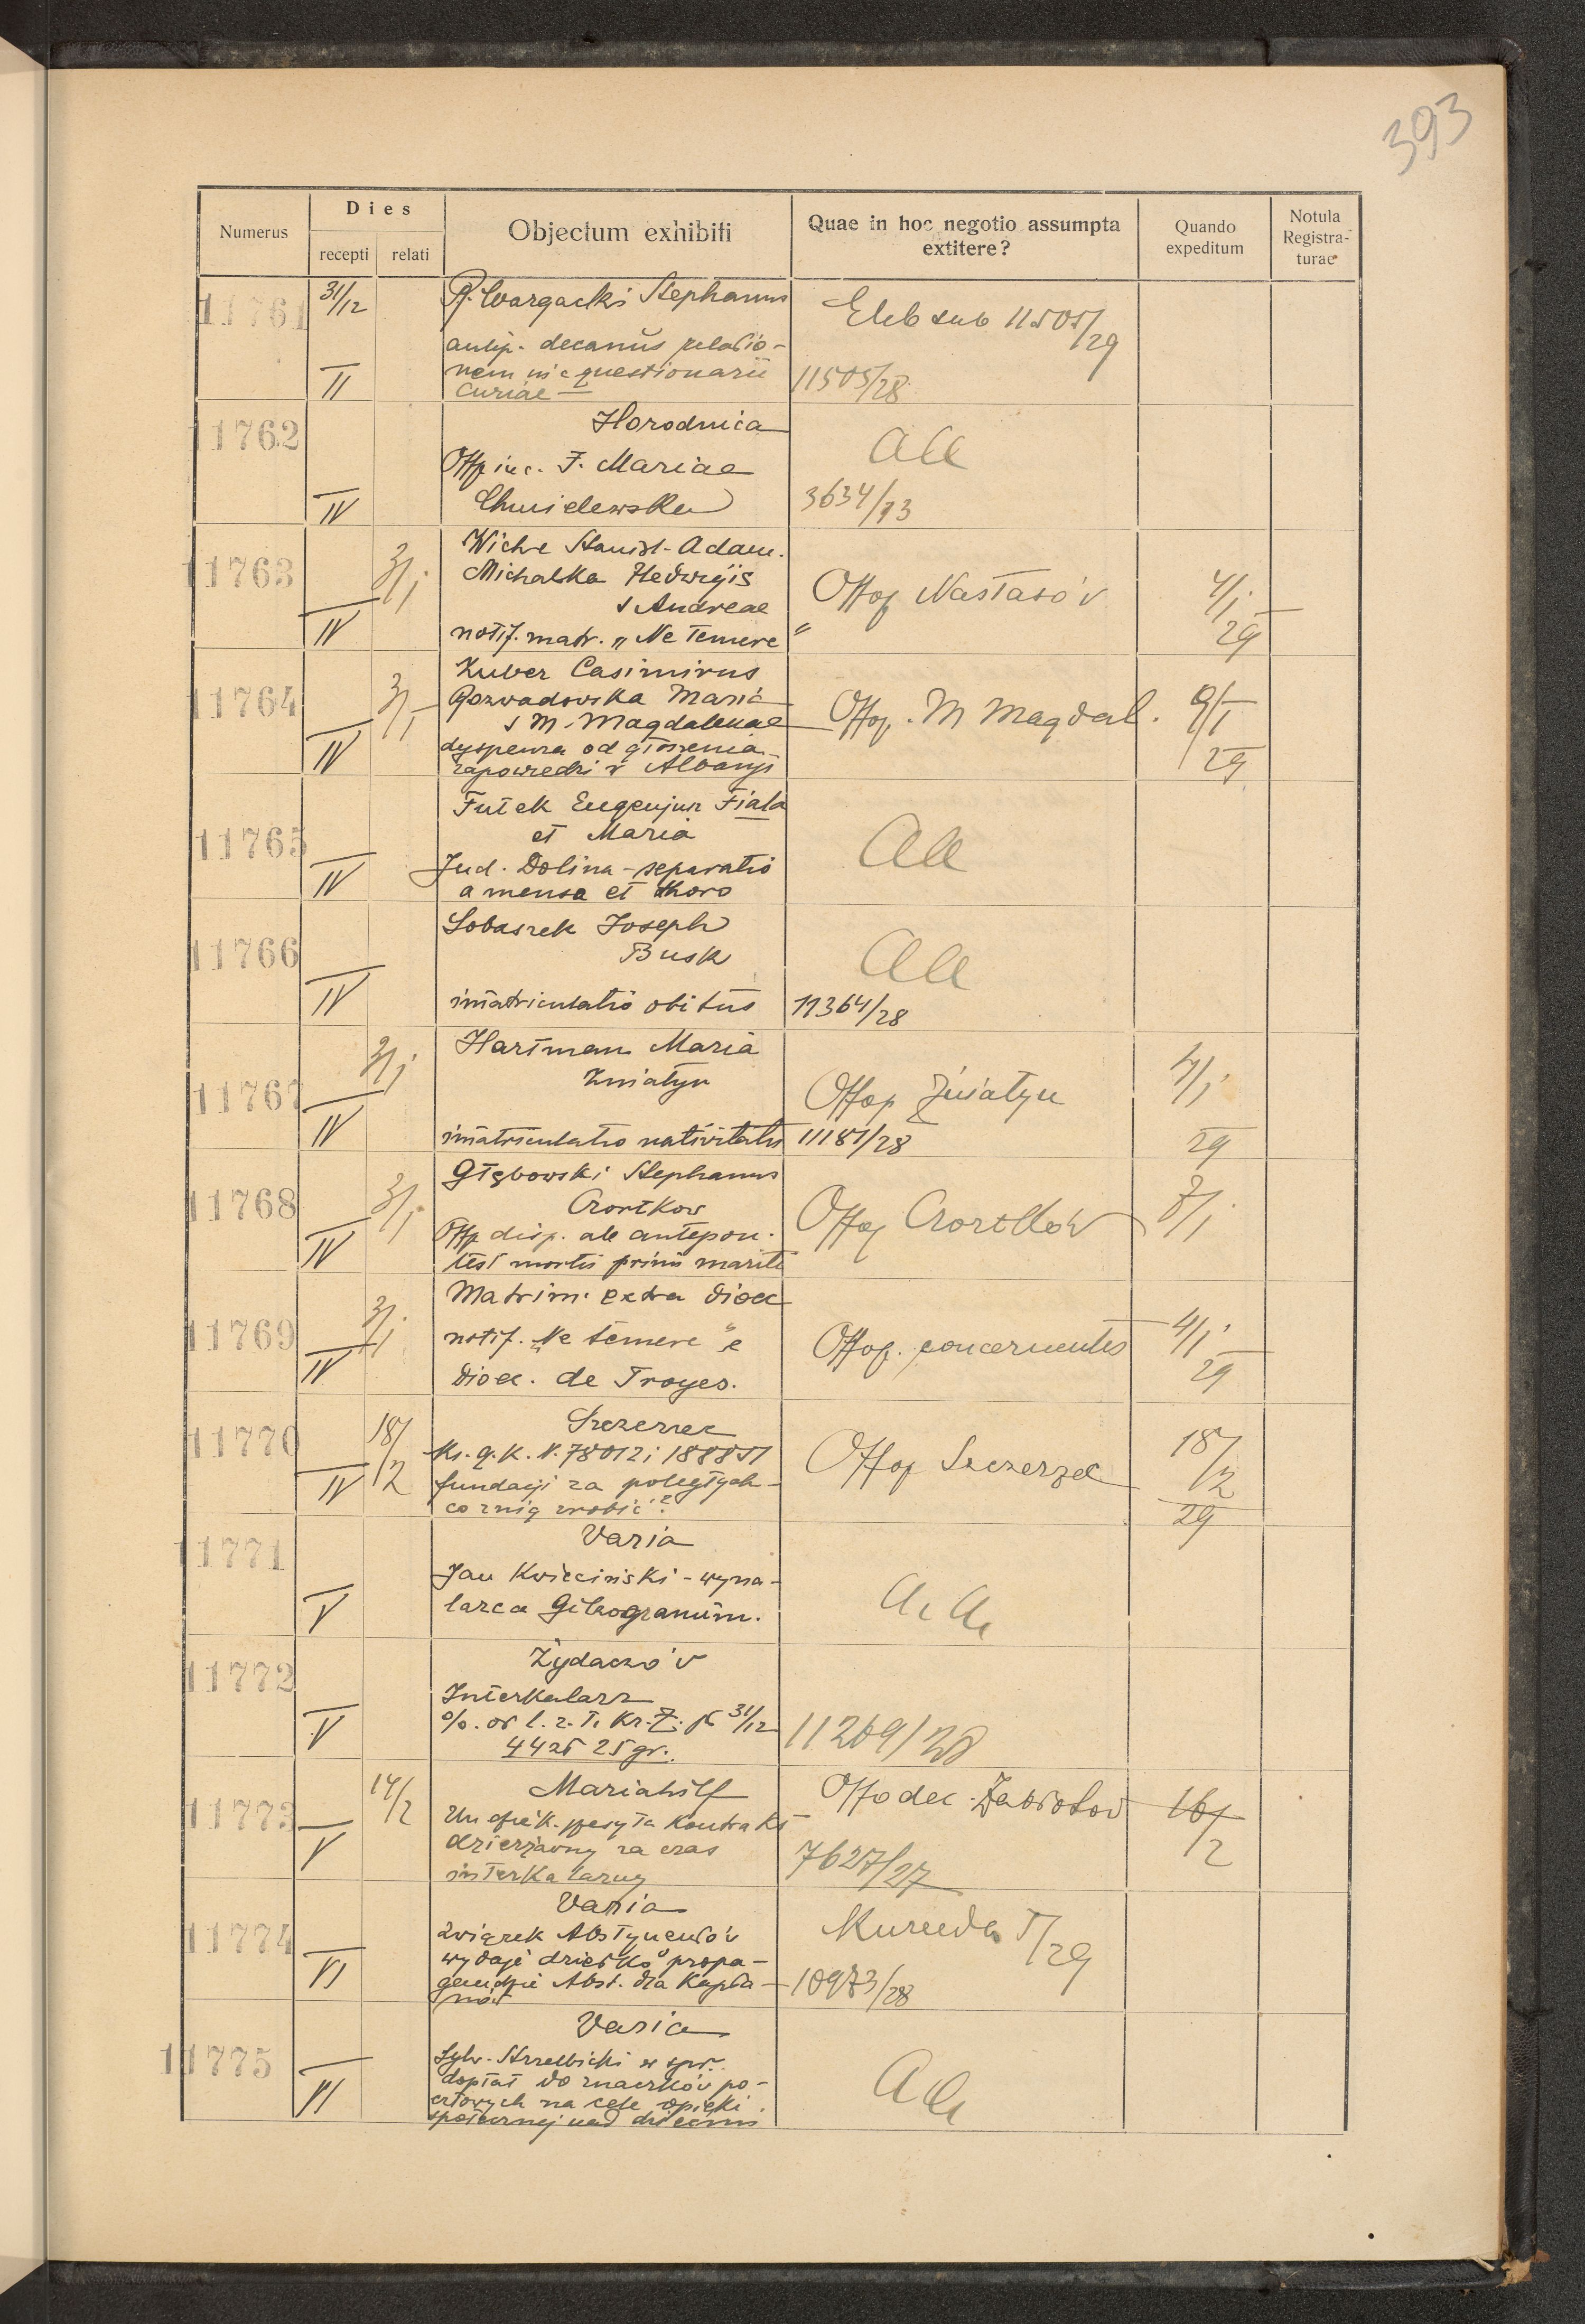 393
Numerus
Dies
recepti relati
Objectum exhibiti
Quae in hoc negotio assumpta
extitere?
Quando
expeditum
Notula
Registra-
turae
11761 31/12
II
R. Wargacki Stephanus
decanus relatio-
nem questionarii
curiae
Elab sub 11505/29
11505/28
11762
IV
Horodnica
Offp inc. F. Mariae
Chmielewska
3634/13
11763 3/i
IV
Wiche Stanisl. Adam.
Michalska Hedwigis
s Andreae
notif. matr. „Ne Temere"
Offop Nastasów
4/i 29
11764 3/i
IV
Zuber Casimirus
Rozwadowska Maria
s M. Magdalenae
dyspensa od głoszenia
zapowiedzi Albanji
Offop. M Magdal.
9/I 29
11765
IV
Futek Eugenjusz Fiala
et Maria
Jud. Dolina - separatio
a mensa et thoro
11766
IV
Lobaszek Joseph
Busk
imatriculatio obitus
11364/28
11767 3/i
IV
Hartman Maria
Żniatyn
imatriculatio nativitatis
Offop Żniatyn
11181/28
4/i 29
11768 3/i
IV
Głębowski Stephanus
Czortkow
Offp disp. ab antepon.
test mortis primi mariti
Offop Czortków
8/i
11769 3/i
IV
Matrim. extra dioec
notif. „Ne temere" e
dioec. de Troyes.
Offop. concernentes
4/i 29
11770 18/2
IV
Szczerzec
Ks. g. k. N. 78012 i 188851
fundacji za poległych -
co z nią zrobić?
Offop Szczerzec
18/2 29
11771
V
Varia
Jan Kwieciński - wyna-
lazca
a. a.
11772
V
Żydaczów
Interkalarz
31/12
4425 25 gr.
11269/28
11773 14/2
V
Mariahilf
kontrakt
dzierżawny za czas
interkalarny
Offo dec. Zabłotów
7627/27
16/2
11774
VI
Varia
Związek Abstynentów
wydaje dziełko propa-
gandzie Abst. dla Kapła-
nów
Kurenda I/29
10973/28
11775
VI
Varia
Sylw. Strzelbicki w spr.
dopłat do znaczków po-
cztowych na cele opieki
społecznej nad dziećmi